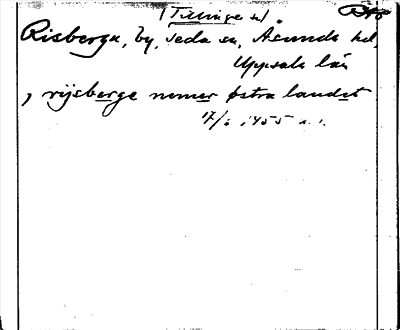 (Tillinge sn)
Risberga, by, Seda sn, Åsunda hd,
Uppsala län
, rijsberge nemer østra landet
17/6 1455